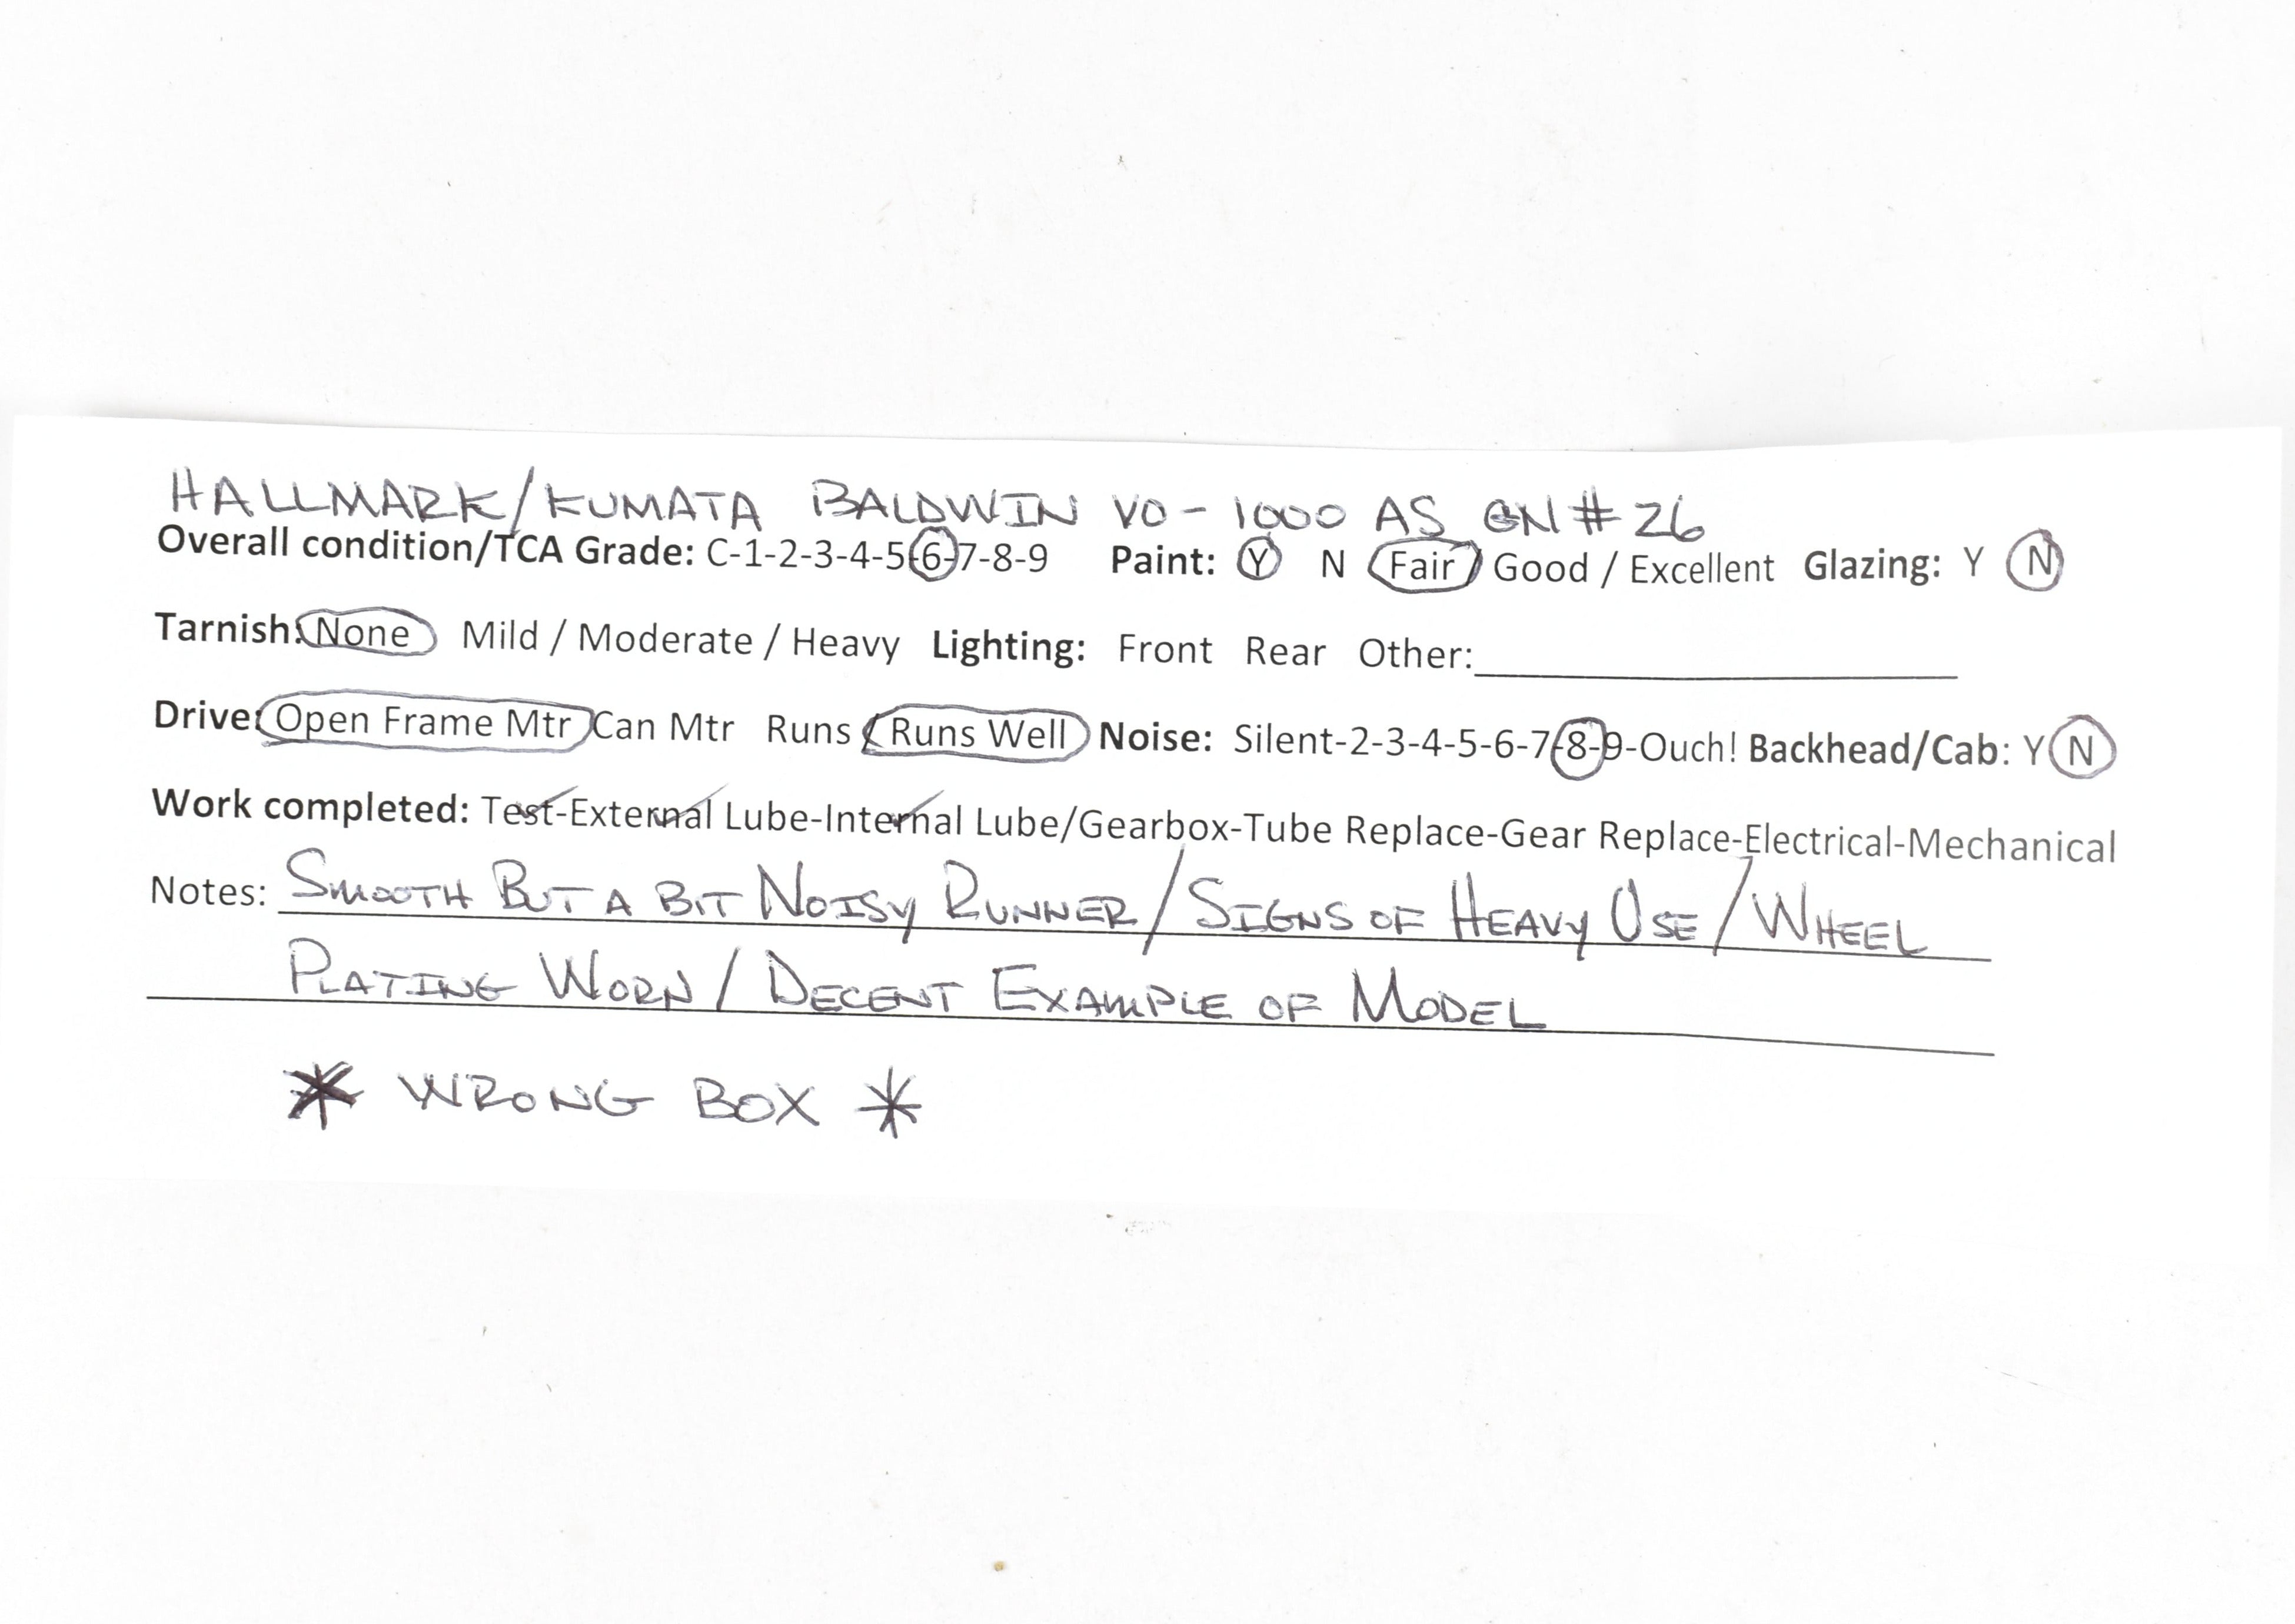 HALLMARK/KUMATA BALDWIN VO-1000 AS GN#26
Overall condition/TCA Grade: C-1-2-3-4-5-6-7-8-9 Paint: Y N Fair / Good / Excellent Glazing: Y N
Tarnish: None Mild / Moderate / Heavy Lighting: Front Rear Other:
Drive: Open Frame Mtr Can Mtr Runs / Runs Well Noise: Silent-2-3-4-5-6-7-8-9-Ouch! Backhead/Cab: Y N
Work completed: Test-External Lube-Internal Lube/Gearbox-Tube Replace-Gear Replace-Electrical-Mechanical
Notes: SMOOTH BUT A BIT NOISY RUNNER/SIGNS OF HEAVY USE/WHEEL
PLATING WORN/DECENT EXAMPLE OF MODEL
* WRONG BOX *